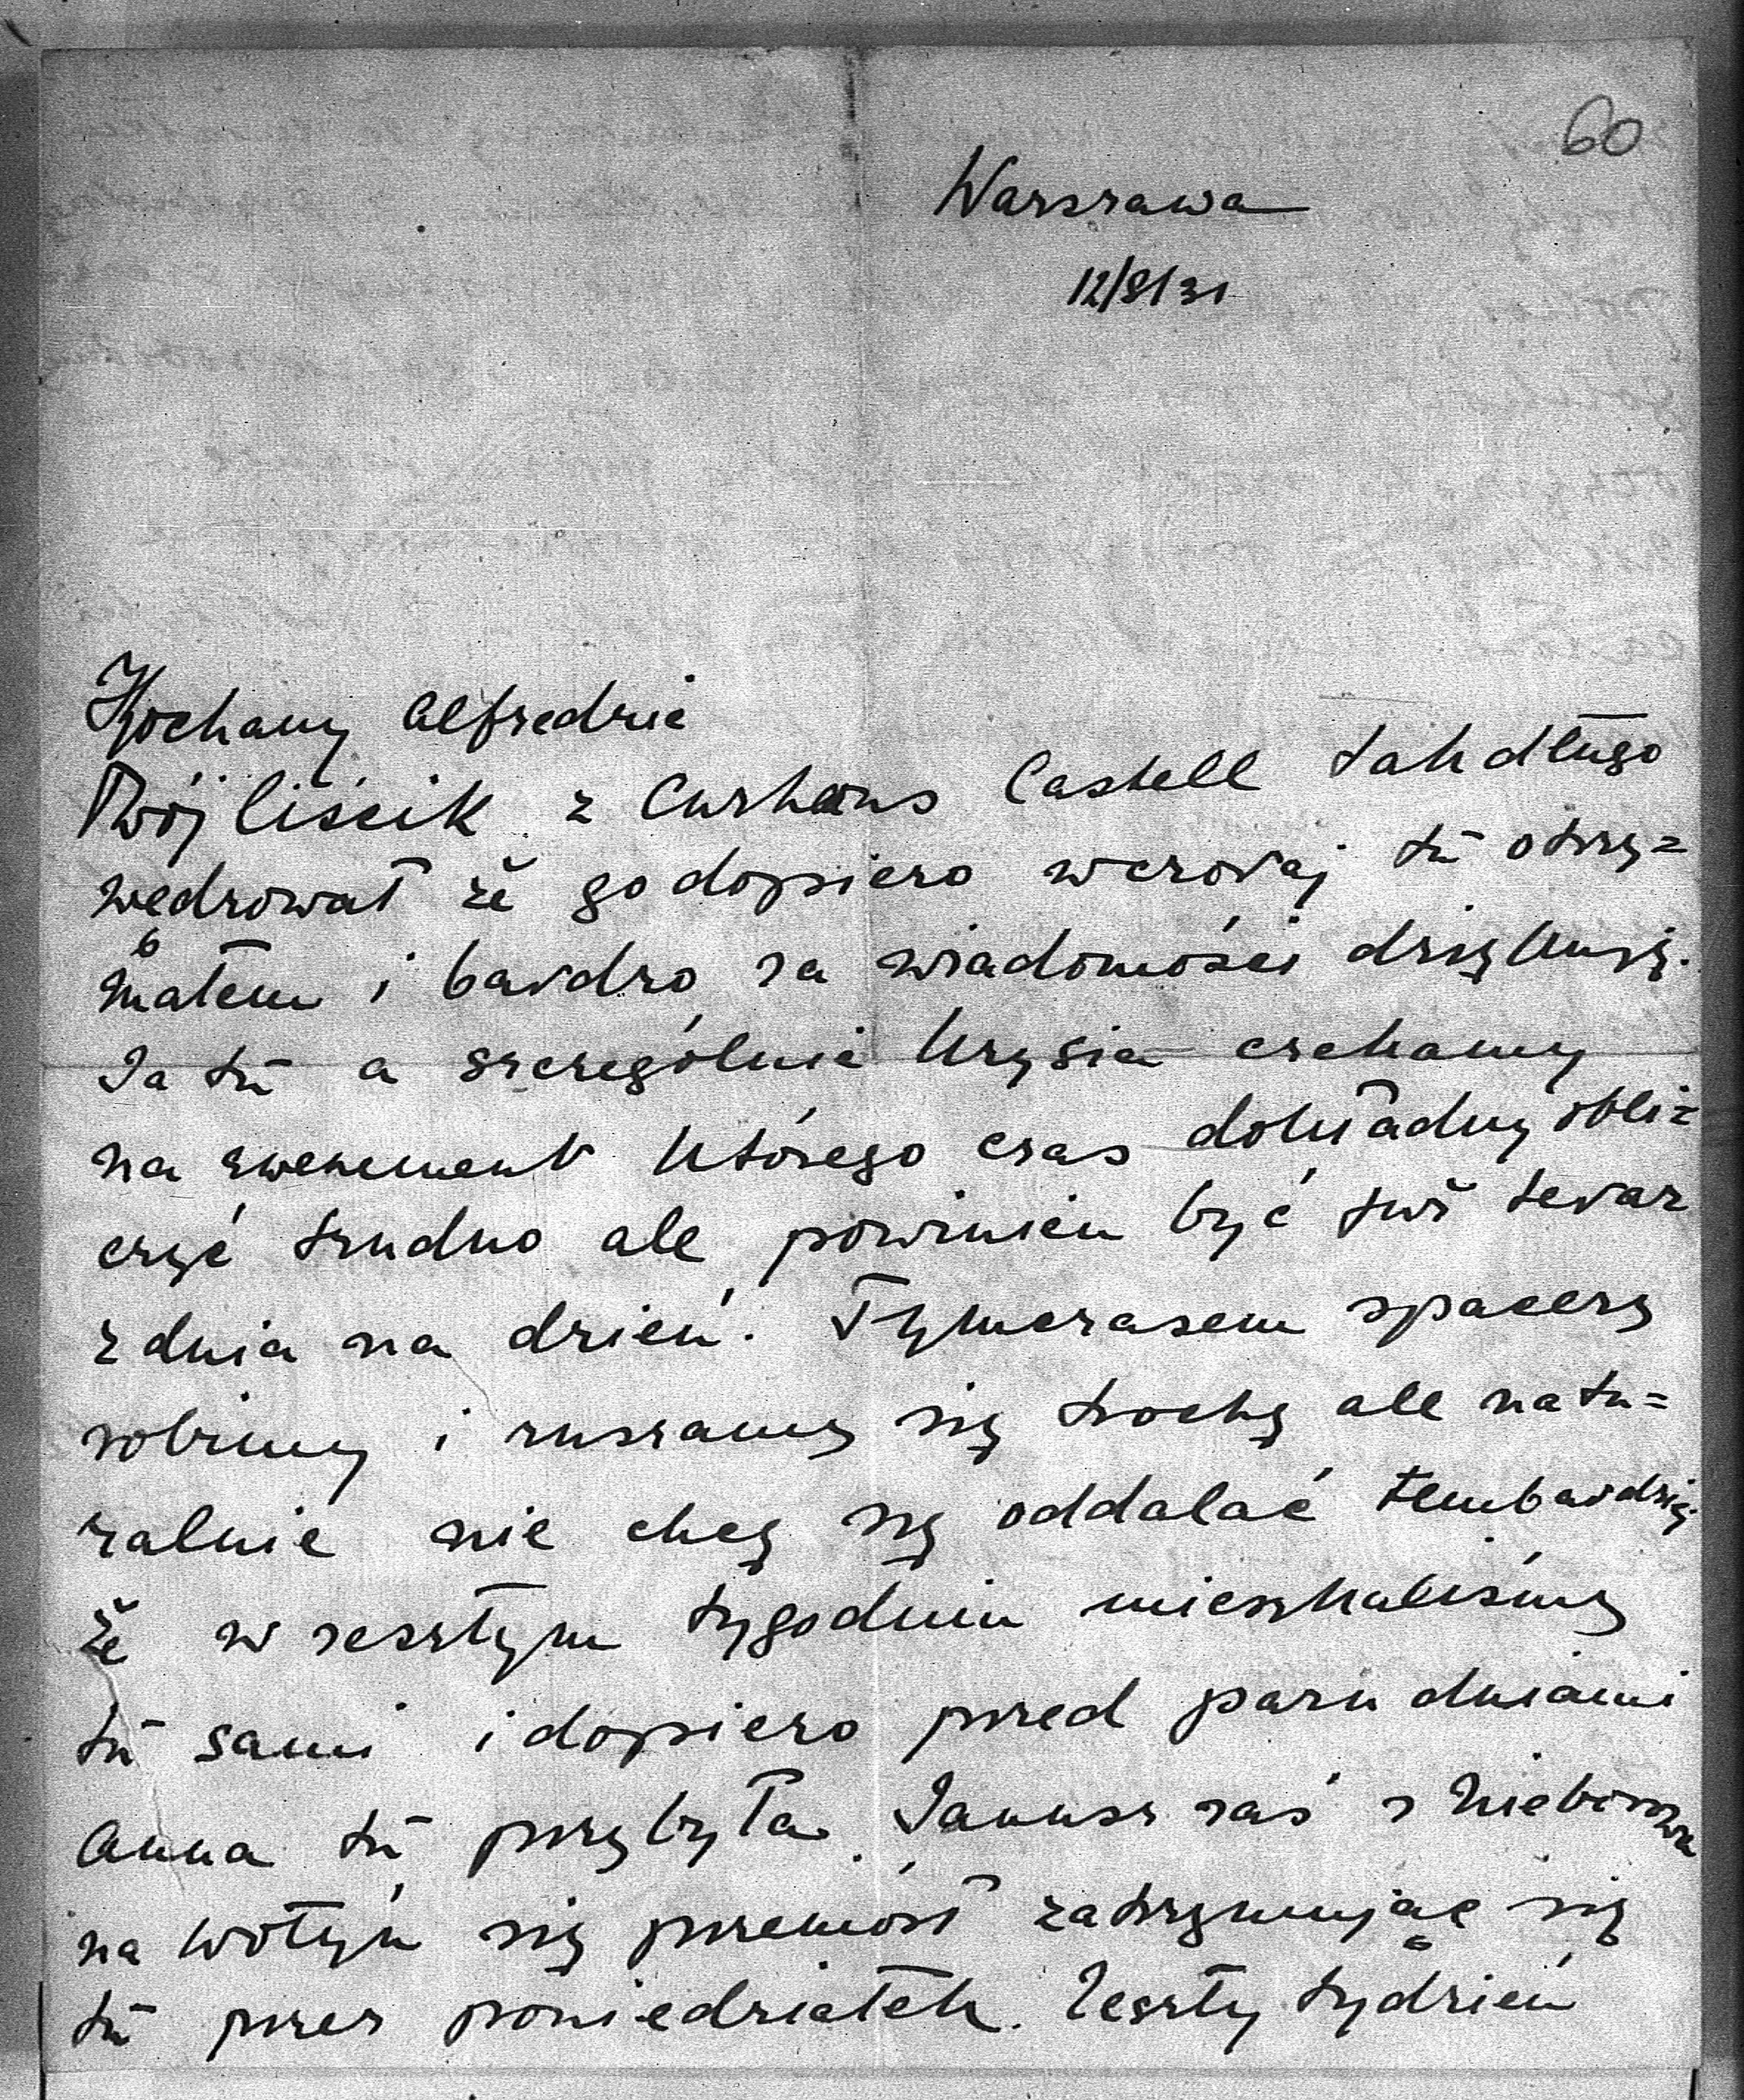 60
Warszawa
12/8/31
Kochany Alfredzie
Twój liścik z Curhaus Castell tak długo
wędrował że go dopiero wczoraj tu otrzy=
małem i bardzo za wiadomości dziękuję.
Ja tu a szczególnie Krysia czekamy
na ewenement którego czas dokładny obli=
czyć trudno ale powinien być już teraz
z dnia na dzień. Tymczasem spacery
robimy i ruszamy się trochę ale natu=
ralnie nie chcę się oddalać tembardziej
że w zeszłym tygodniu mieszkaliśmy
tu sami i dopiero przed paru dniami
Anna tu przybyła. Janusz zaś z Nieborowa
na Wołyń się przeniósł zatrzymując się
tu przez poniedziałek. Zeszły tydzień